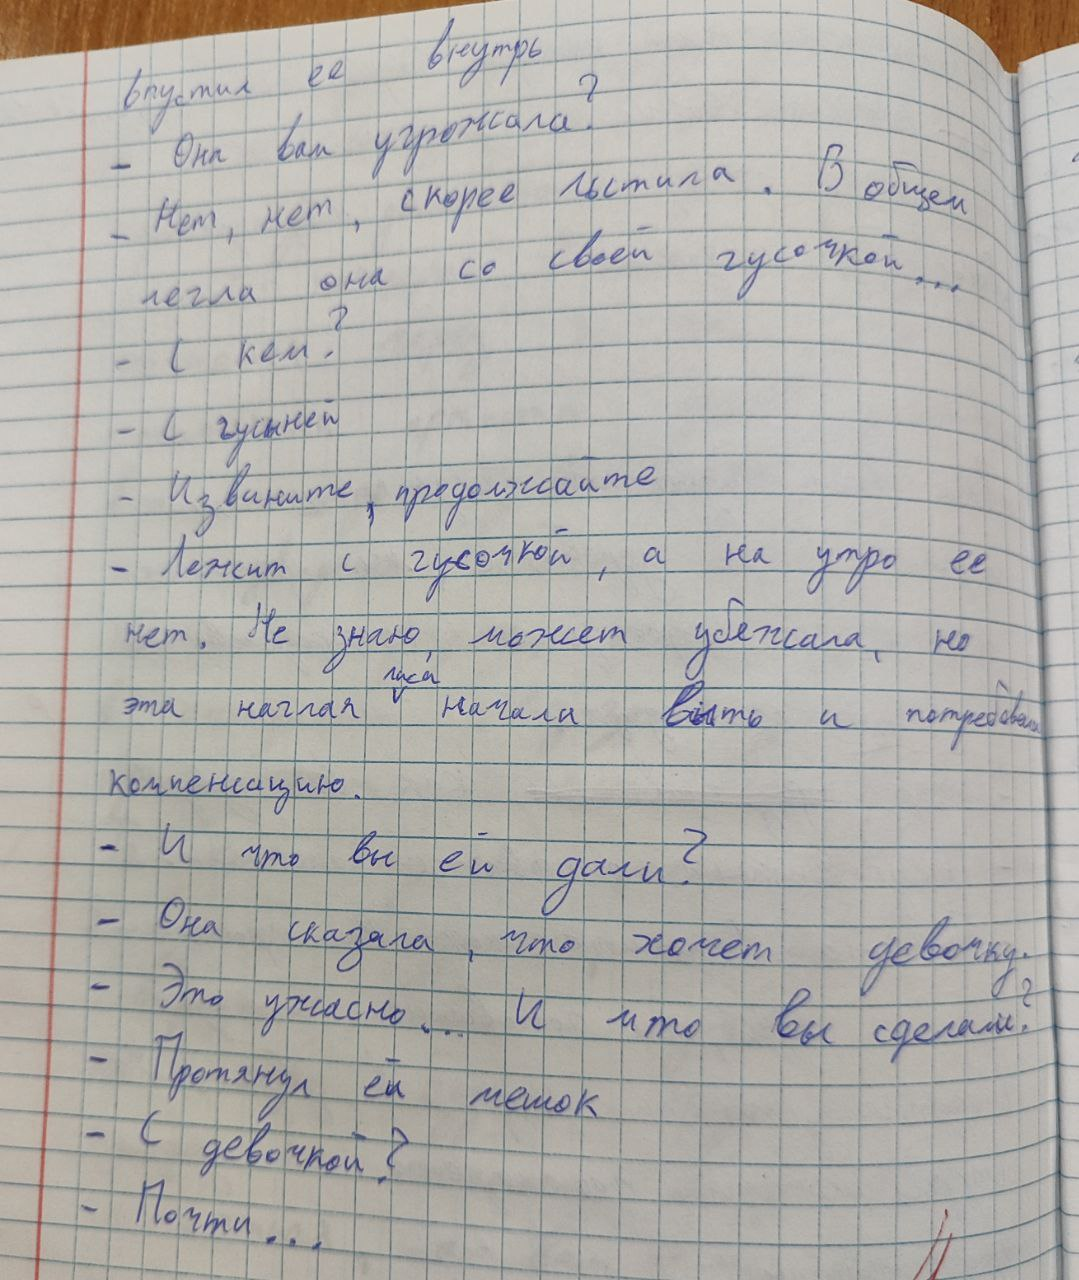 впустил ее внутрь
- Она вам угрожала?
- Нет, нет, скорее льстила. В общем
легла она со своей гусочкой...
- С кем?
- С гусыней
- Извините, продолжайте
- Лежит с гусочкой, а на утро ее
нет. Не знаю, может убежала, но
лиса
эта наглая начала выть и потребовала
компенсацию.
- И что вы ей дали?
- Она сказала, что хочет девочку.
- Это ужасно... И что вы сделали?
- Протянул ей мешок
- С девочкой?
- Почти...